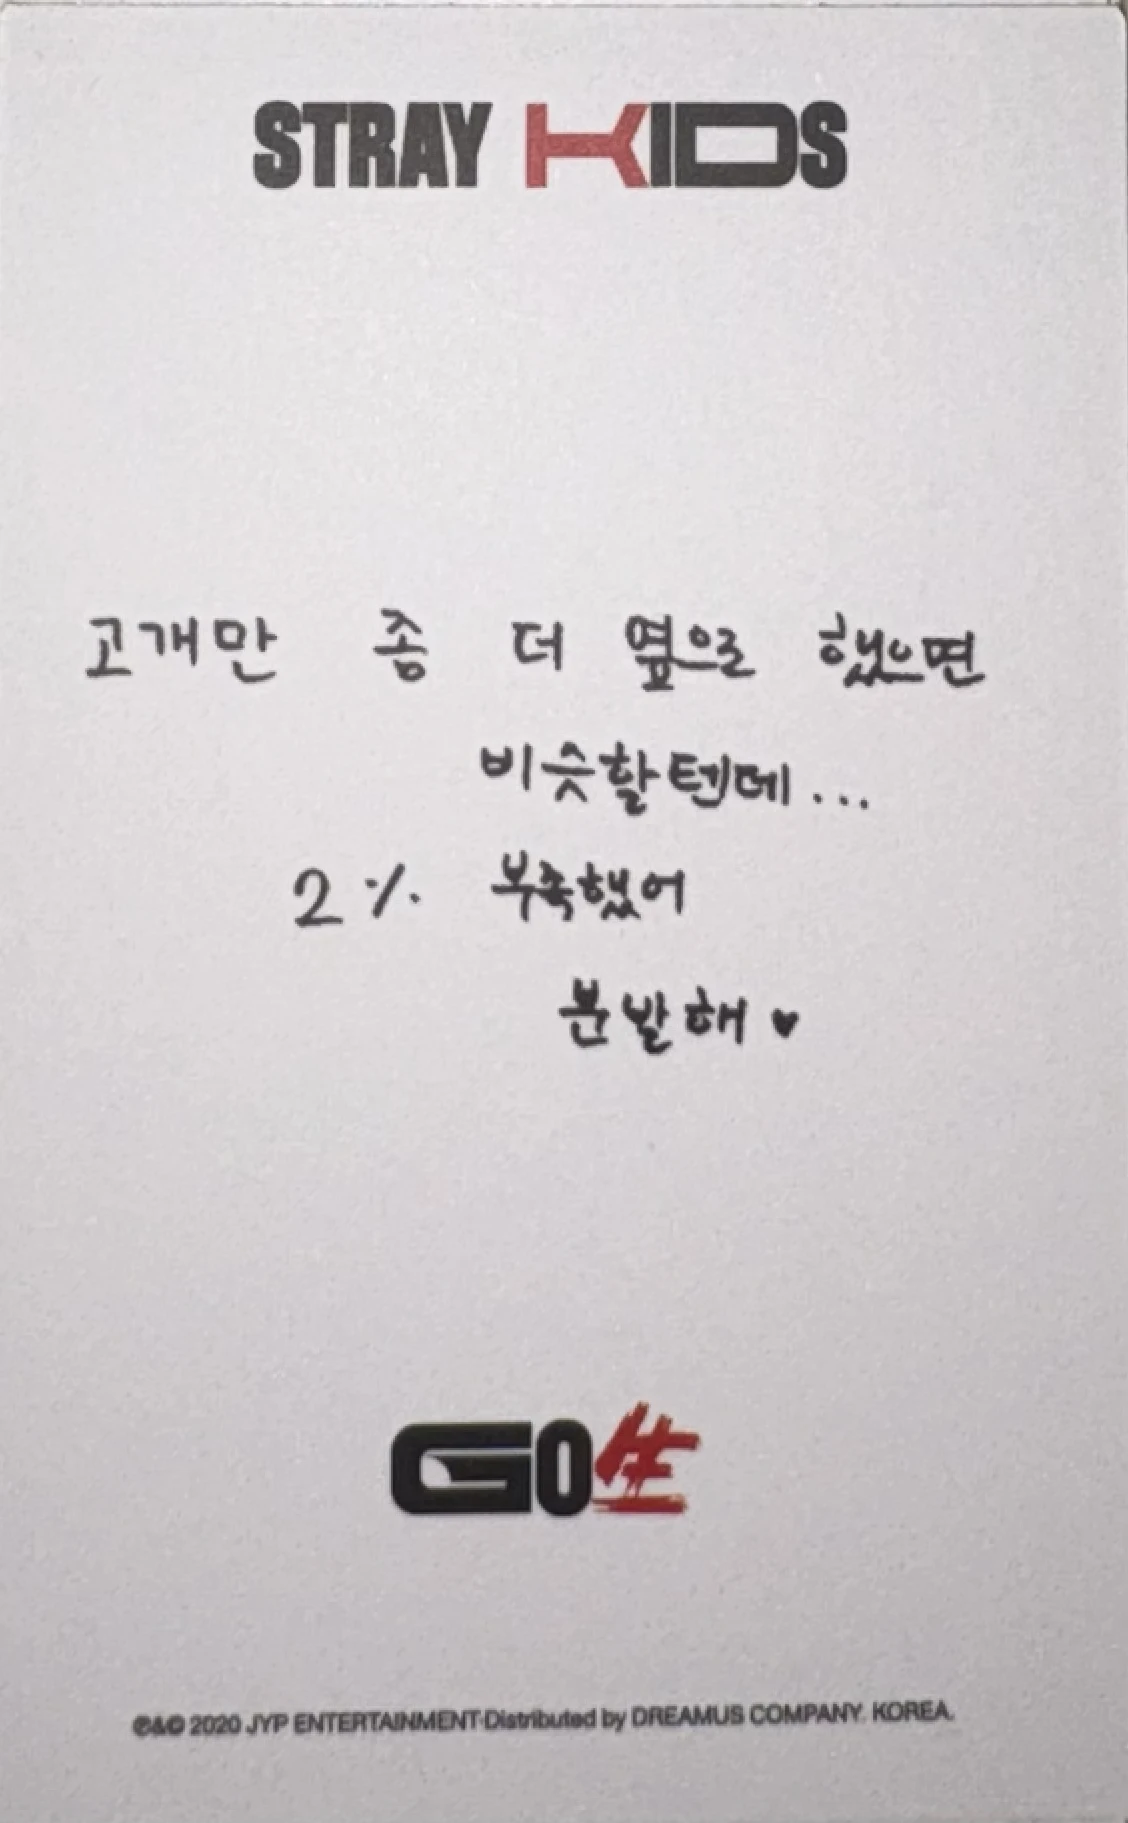 STRAY KIDS
고개만 좀 더 옆으로 했으면
비슷할텐데...
2% 부족했어
분발해 ♥
GO生
℗&© 2020 JYP ENTERTAINMENT Distributed by DREAMUS COMPANY. KOREA.